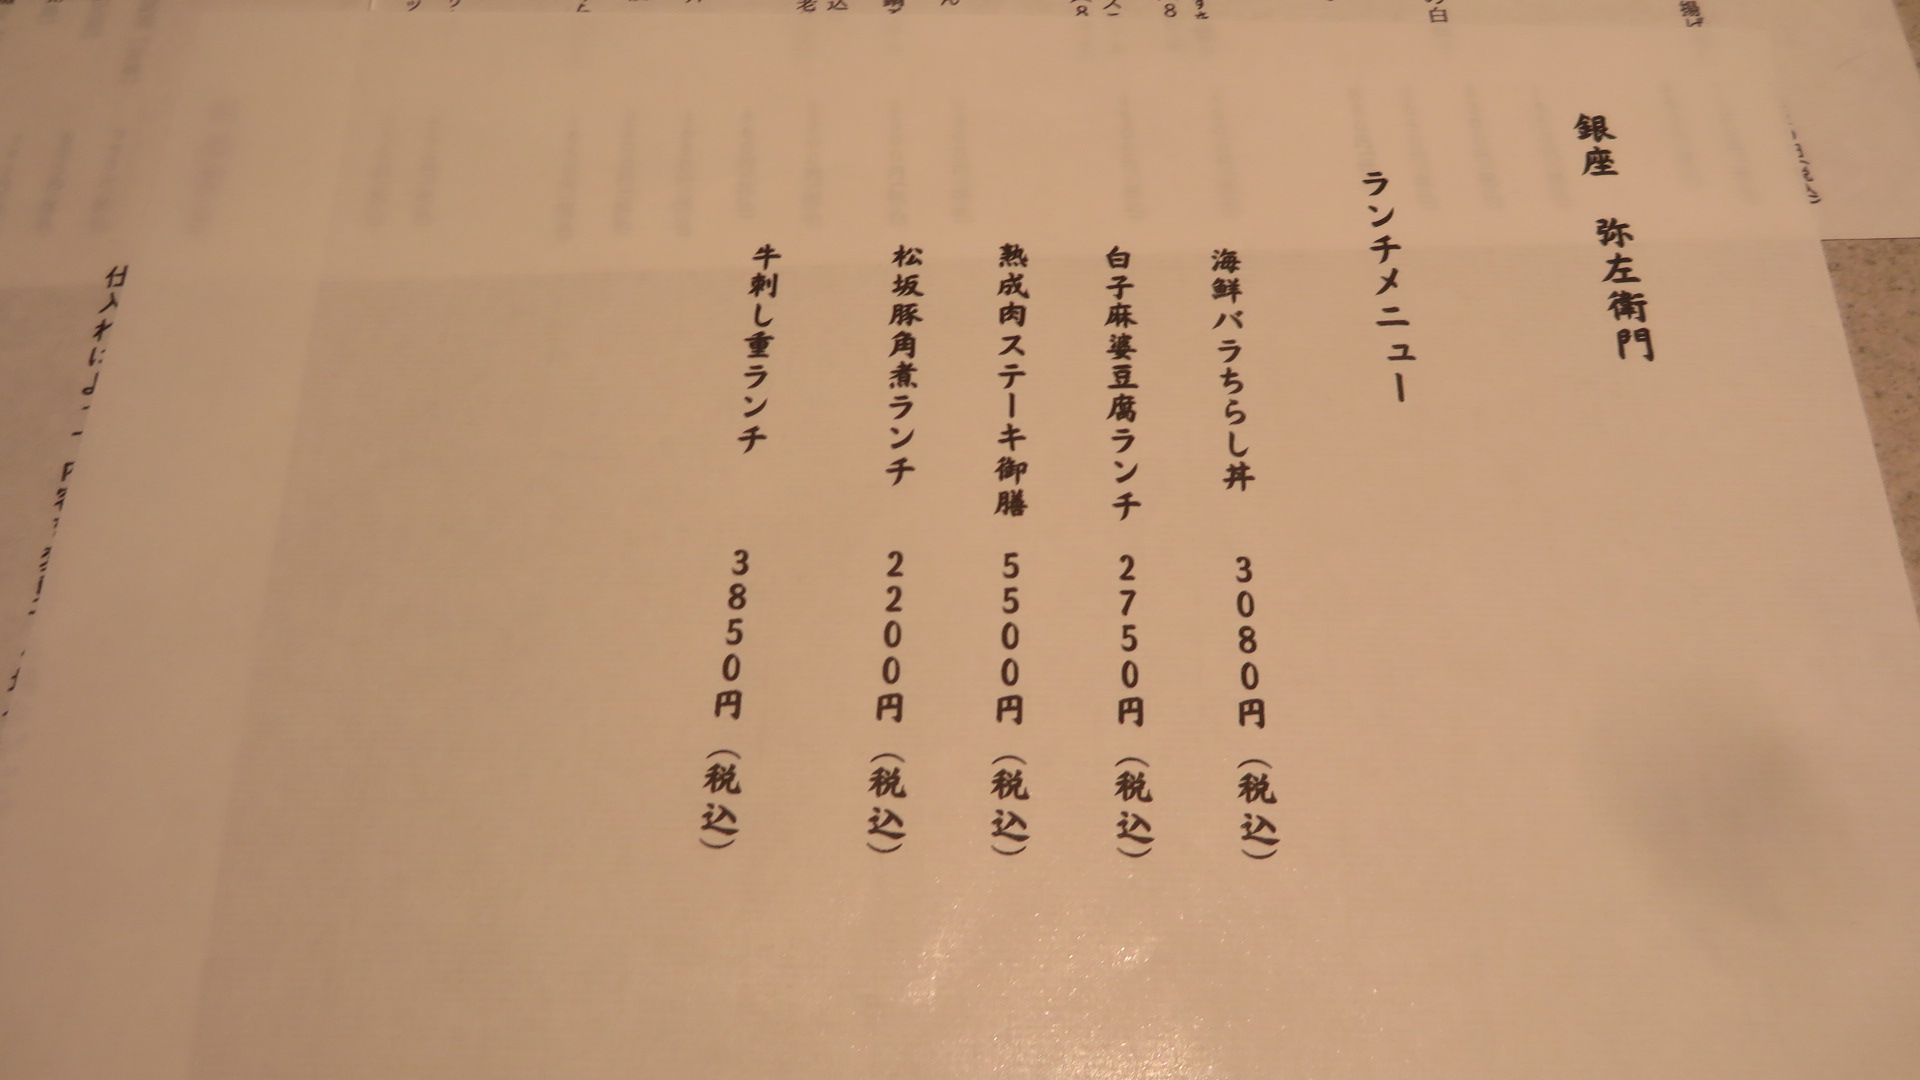 銀座 弥左衛門
ランチメニュー
海鮮バラちらし丼 3080円(税込)
白子麻婆豆腐ランチ 2750円(税込)
熟成肉ステーキ御膳 5500円(税込)
松坂豚角煮ランチ 2200円(税込)
牛刺し重ランチ 3850円(税込)
仕入れによ